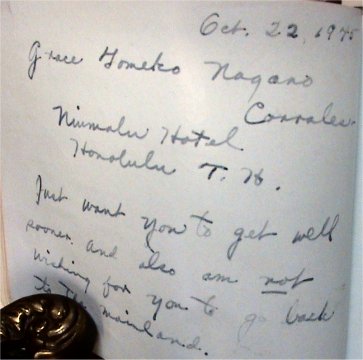 Oct. 22, 1945
Grace Tomeko Nagano
Corrales
Niumalu Hotel
Honolulu T. H.
Just want you to get well
sooner and also am not
wishing for you to go back
to the mainland.